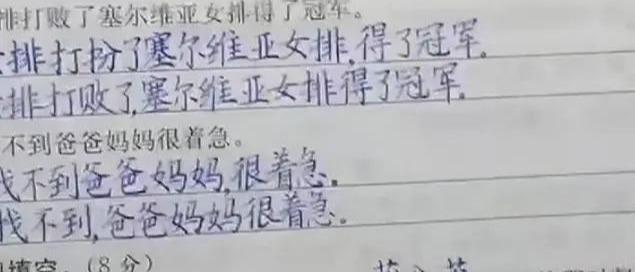 排打败了塞尔维亚女排得了冠军。
排打扮了塞尔维亚女排,得了冠军.
排打败了,塞尔维亚女排得了冠军.
不到爸爸妈妈很着急。
找不到爸爸妈妈,很着急.
找不到,爸爸妈妈很着急。
填空。(8分)